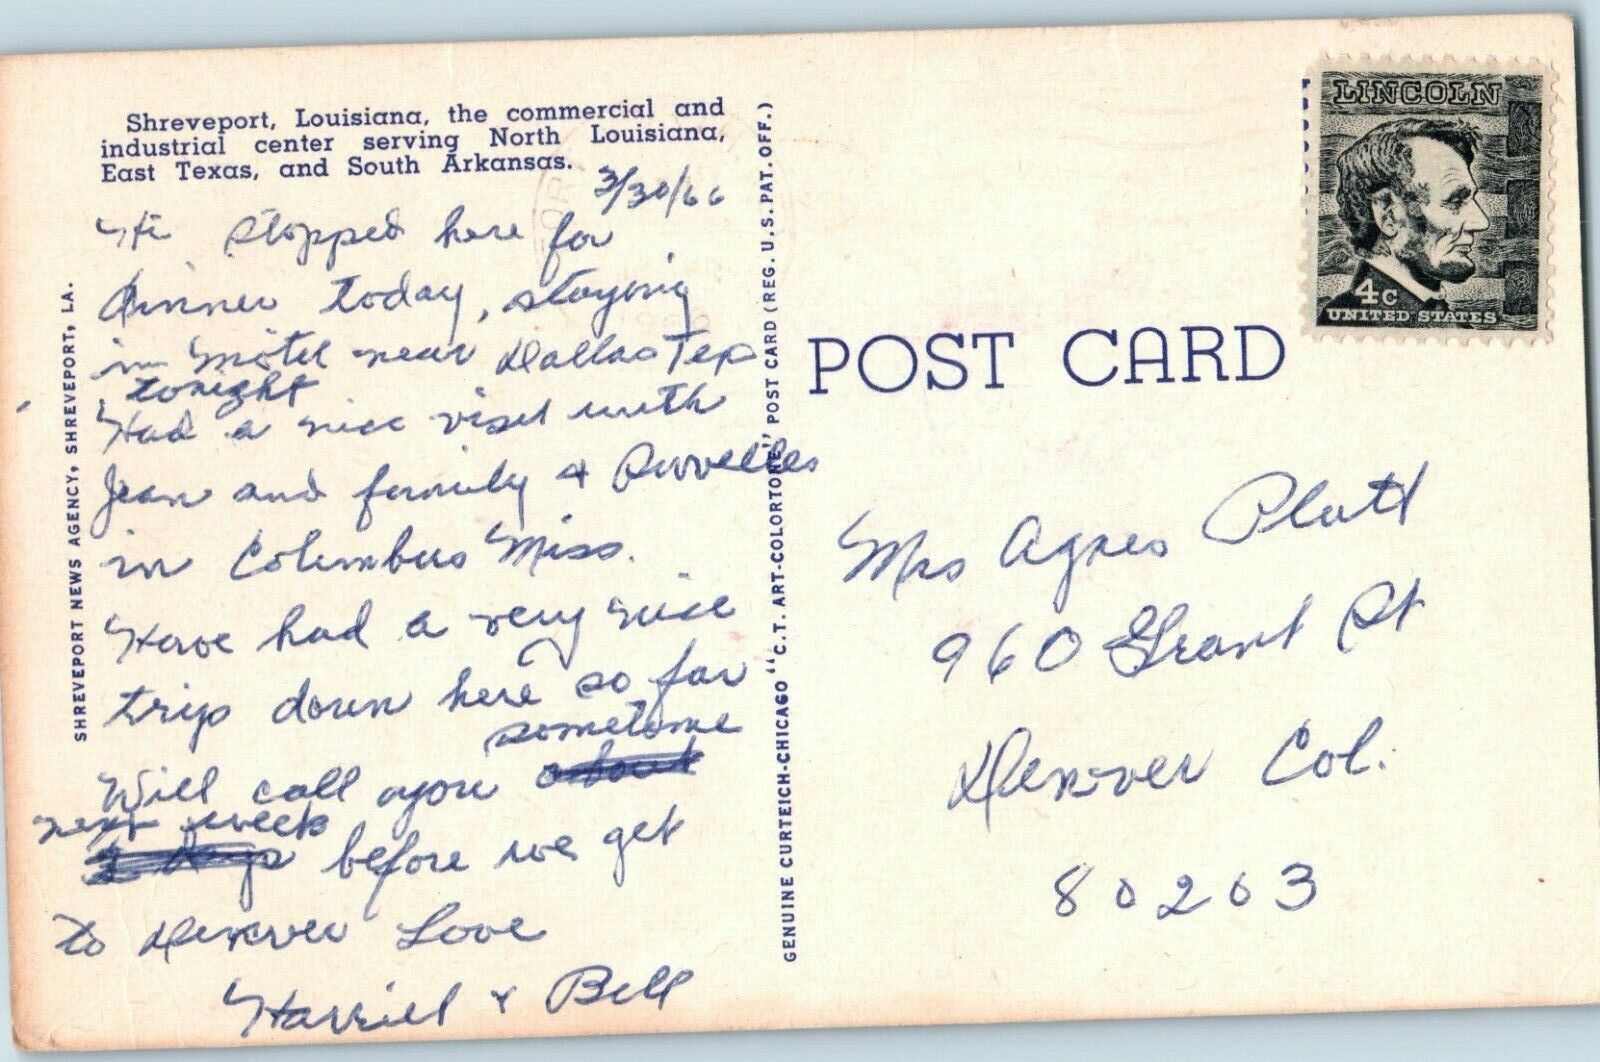 Shreveport, Louisiana, the commercial and
industrial center serving North Louisiana,
East Texas, and South Arkansas.
3/30/66
Hi Stopped here for
dinner today, staying
in Motel near Dallas Tex
tonight
Had a nice visit with
Jean and family &
in Columbus Miss.
Have had a very nice
trip down here so far
sometime
Will call you about
next week
days before we get
to Denver Love
Harriet & Bill
SHREVEPORT NEWS AGENCY, SHREVEPORT, LA.
GENUINE CURTEICH-CHICAGO "C. T. ART-COLORTONE" POST CARD (REG. U. S. PAT. OFF.)
LINCOLN
4c
UNITED STATES
POST CARD
Mrs Agnes Platt
960 Grant St
Denver Col.
80203